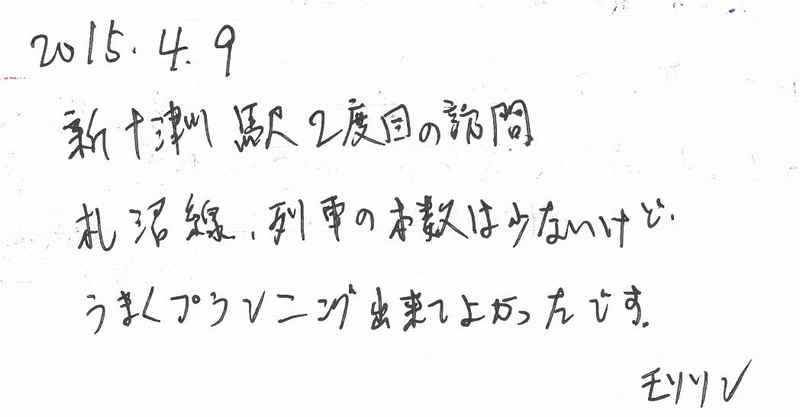 2015.4.9
新十津川駅2度目の訪問
札沼線、列車の本数は少ないけど、
うまくプランニング出来てよかったです。
モリリン